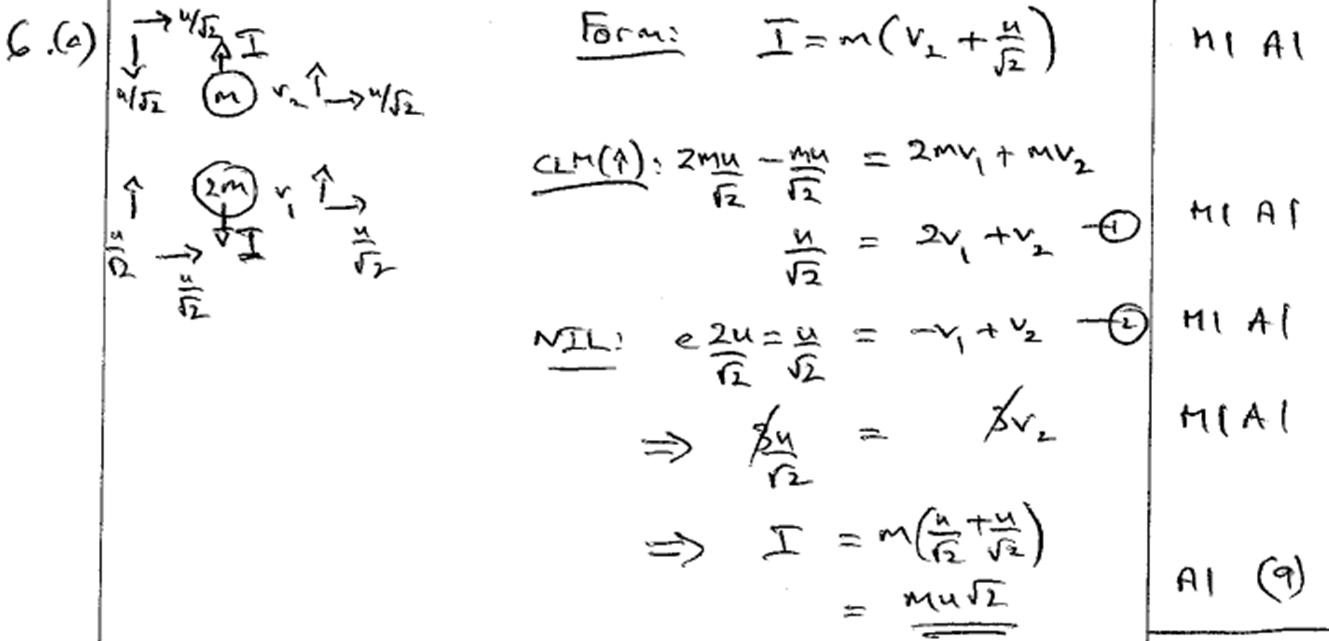 6.(a)
→ u/√2
↓ u/√2
↑ I
m v₂ ↑ → u/√2
↑ u/√2 → u/√2
2m v₁ ↑ → u/√2
↓ I
Form: I = m(v₂ + u/√2) M1 A1
CLM(↑): 2mu/√2 − mu/√2 = 2mv₁ + mv₂
u/√2 = 2v₁ + v₂ —① M1 A1
NIL: e 2u/√2 = u/√2 = −v₁ + v₂ —② M1 A1
⇒ 3u/√2 = 3v₂ M1 A1
⇒ I = m(u/√2 + u/√2)
= mu√2 A1 (9)